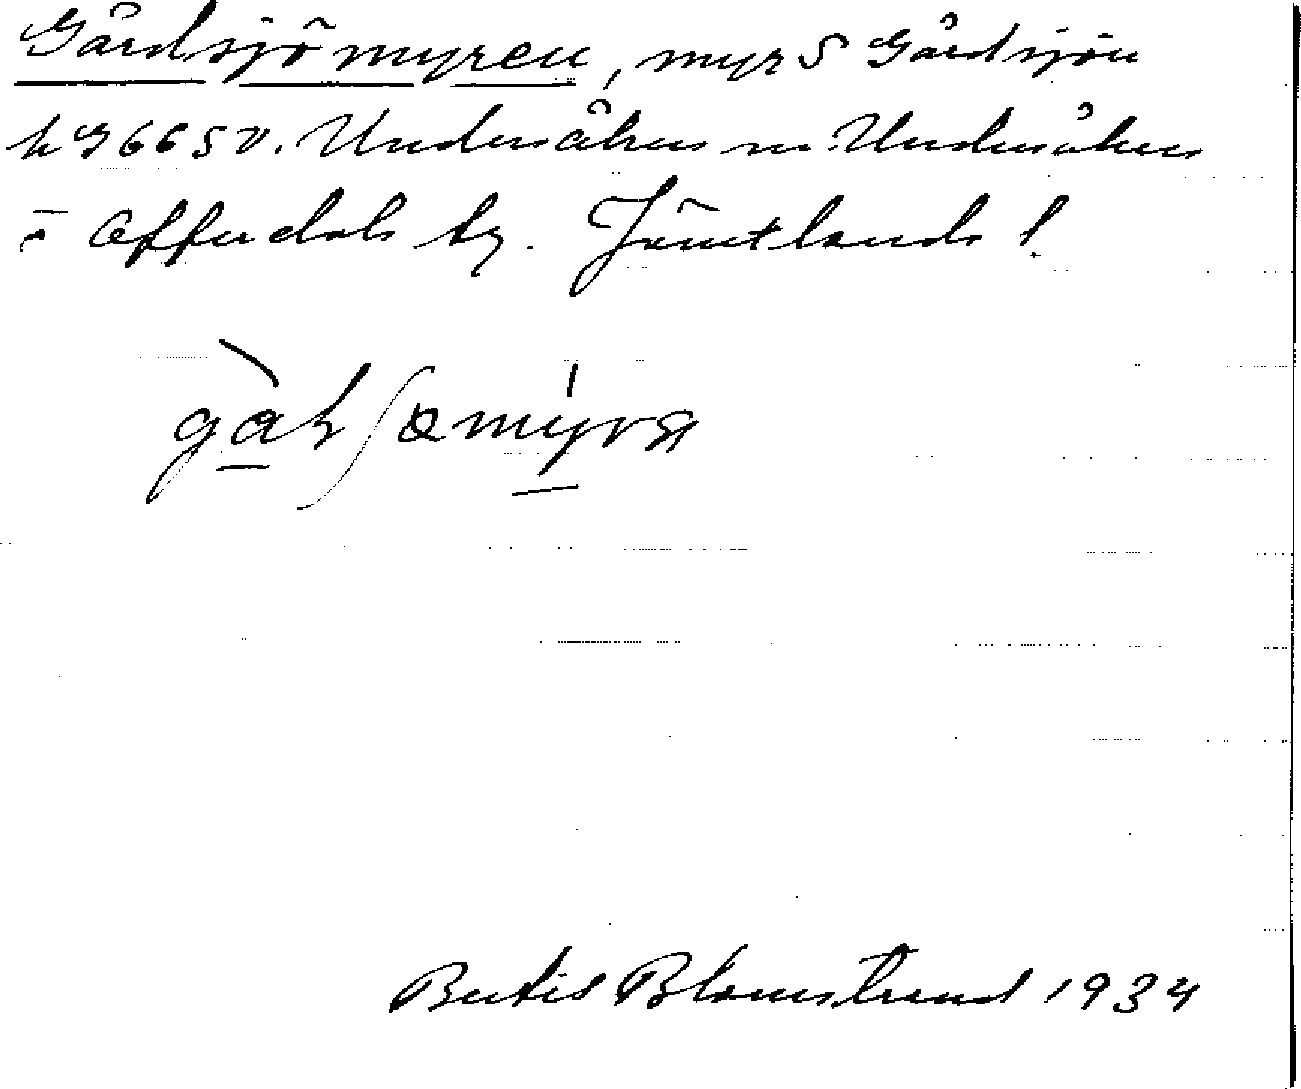 Gårdsjömyren, myr S Gårdsjön
h 966 SV. Undersåkers sn Undersåkers
o Offerdals tg. Jämtlands l.
Bertil Blomstrand 1934